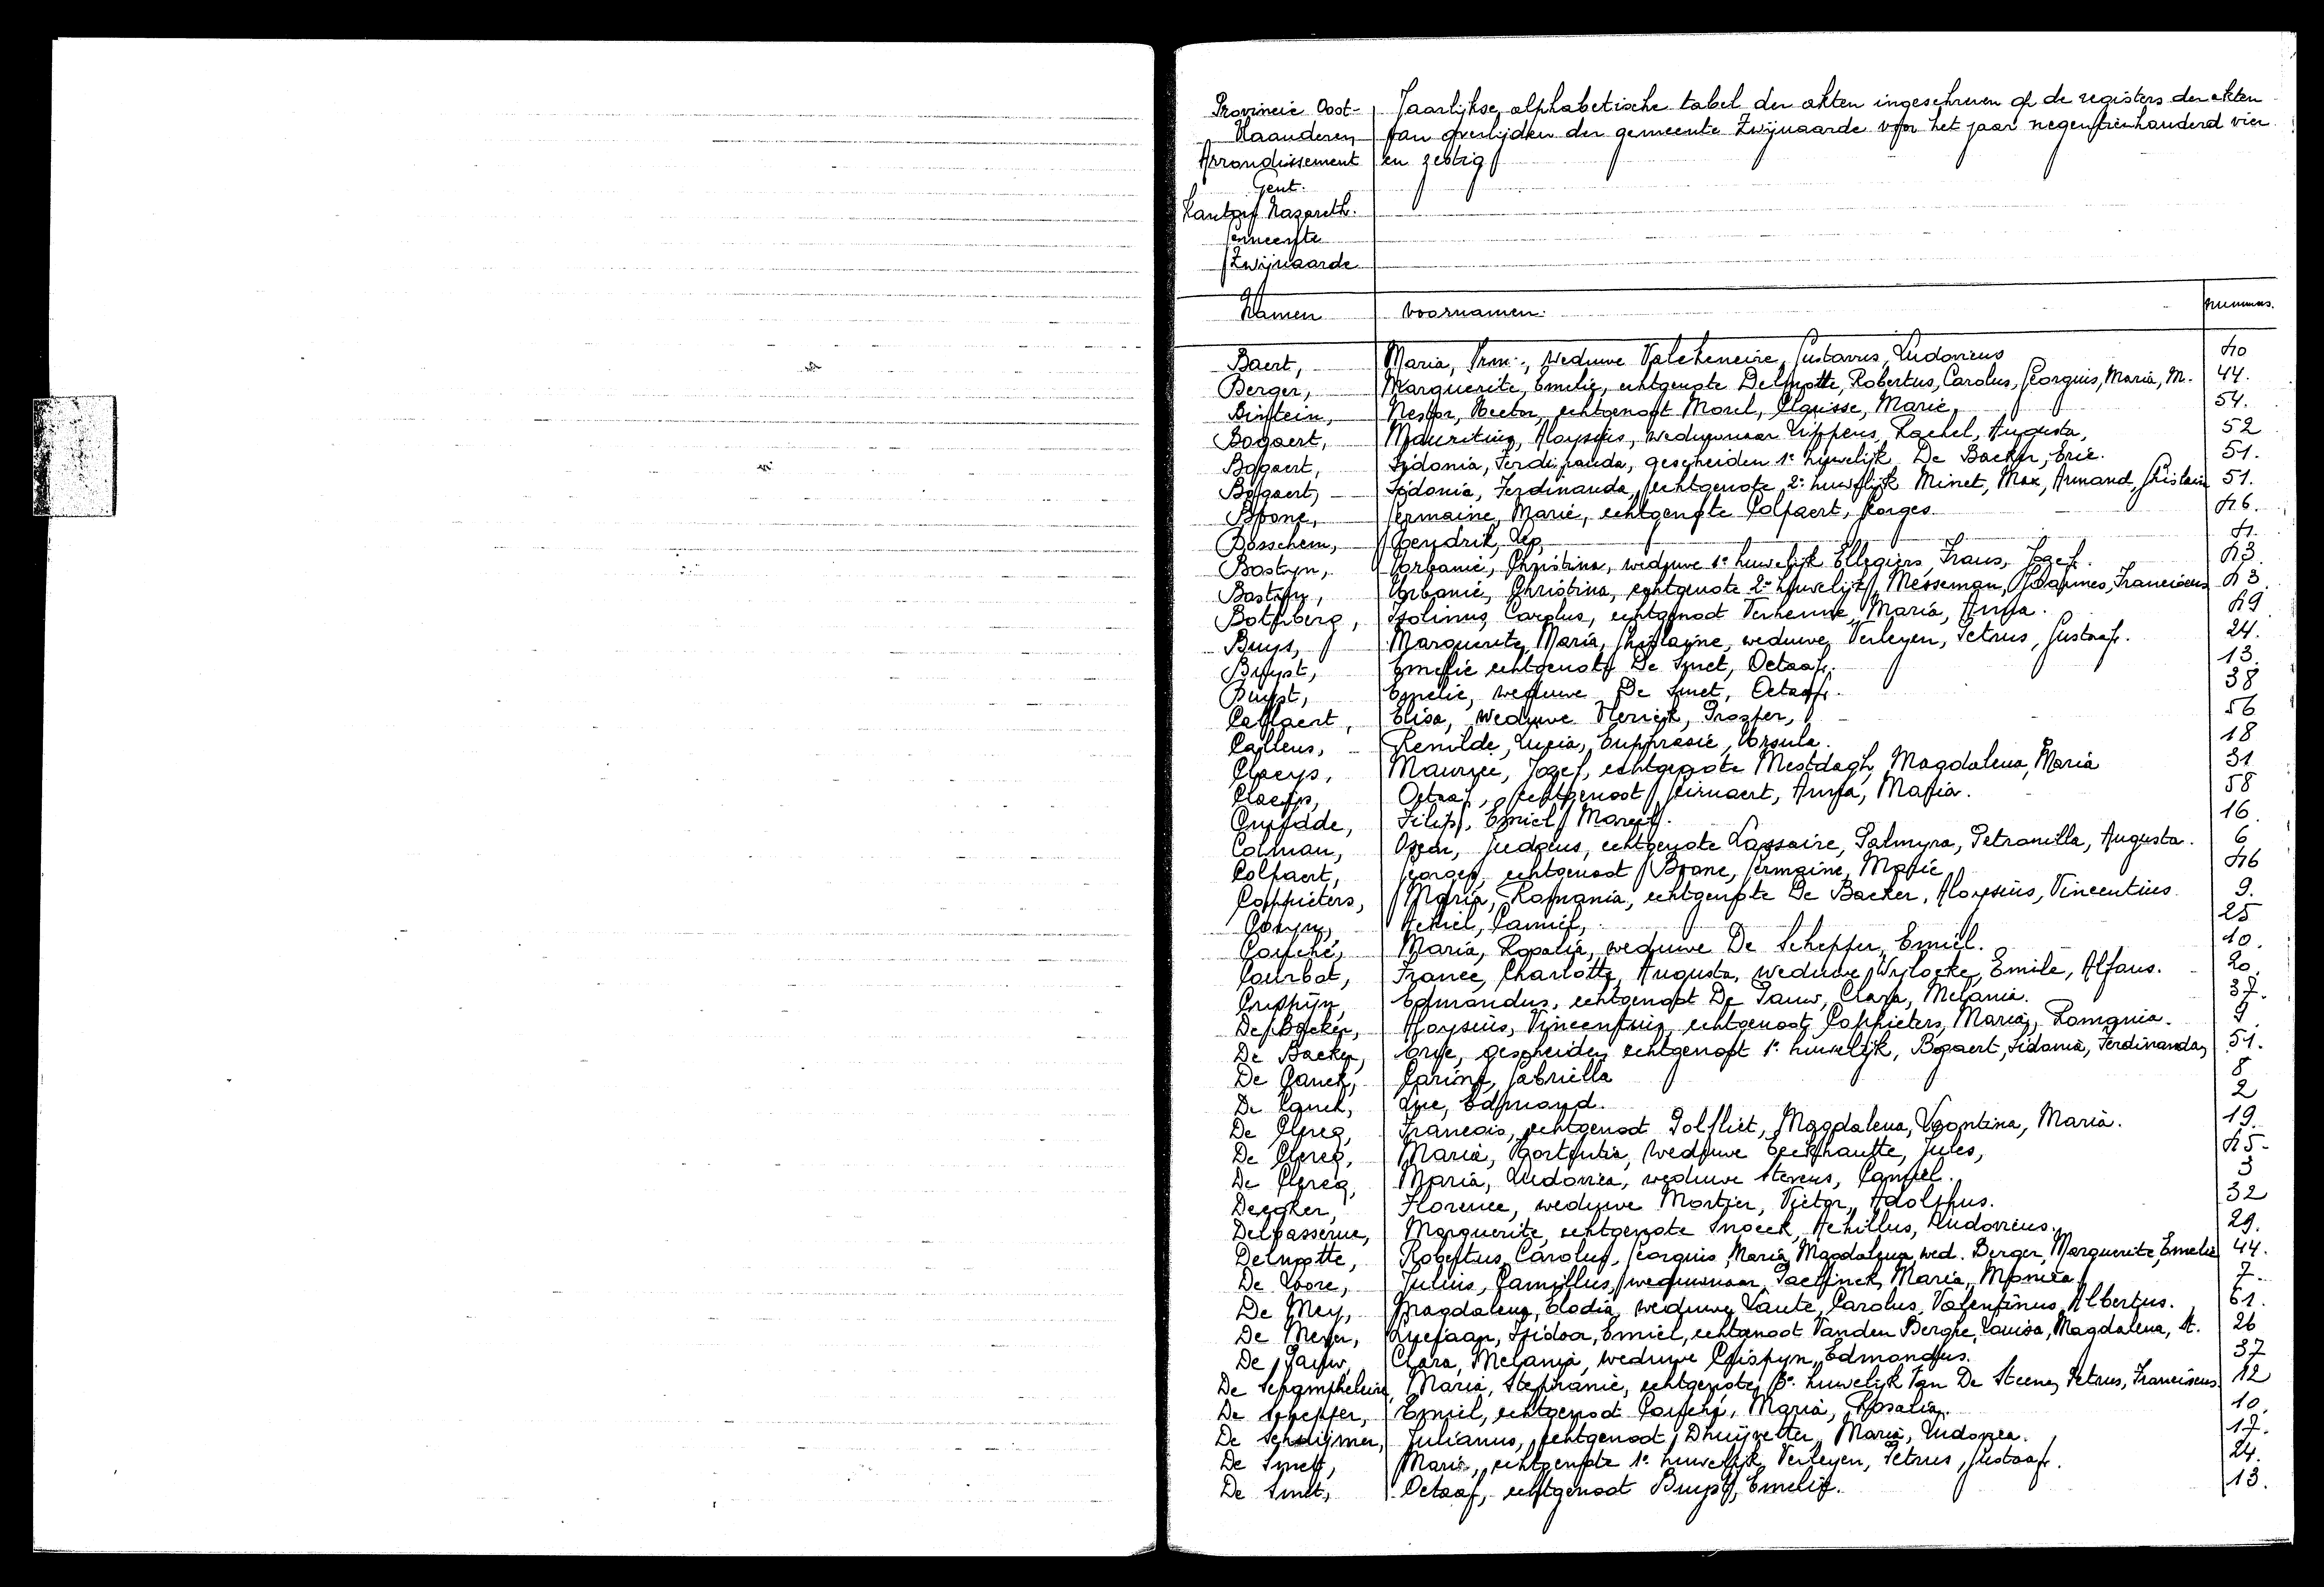 Provincie Oost- Jaarlijkse alphabetische tabel der akten ingeschreven op de registers der akten
Vlaanderen van overlijden der gemeente Zwijnaarde voor het jaar negentienhonderd vier
Arrondissement en zestig
Gent.
Kanton Nazareth.
Gemeente
Zwijnaarde
Namen Voornamen. nummers.
Baert, Maria, Irm., weduwe Valcheneire, Gustavus, Ludovicus 40
Berger, Marguerite, Emelie, echtgenote Delmotte, Robertus, Carolus, Georgius, Maria, M. 44.
Bintein, Nestor, Hector, echtgenoot Morel, Clarisse, Marie, 54.
Bogaert, Mauritius, Aloysius, weduwnaar Lippens, Rachel, Augusta, 52
Bogaert, Sidonia, Ferdinanda, gescheiden 1e huwelijk De Backer, Eric. 51.
Bogaert, Sidonia, Ferdinanda, echtgenote 2e huwelijk Minet, Max, Armand, Ghislain 51.
Boone, Germaine, Marie, echtgenote Colpaert, Georges. 46.
Bosschem, Hendrik, Lep, 4.
Bostyn, Urbanie, Christina, weduwe 1e huwelijk Ellegiers, Frans, Jozef. 43
Bostyn, Urbanie, Christina, echtgenote 2e huwelijk Messeman, Joannes, Franciscus 43.
Boterberg, Isolinus, Carolus, echtgenoot Verhenne, Maria, Anna. 49
Buys, Marguerite, Maria, Ghislayne, weduwe Verleyen, Petrus, Gustaaf. 24.
Buyst, Emelie echtgenote De Smet, Octaaf. 13.
Buyst, Emelie, weduwe De Smet, Octaaf. 38
Callaert, Elisa, weduwe Vlerick, Prosper, 56
Callens, Renilde, Lucia, Euphrasie, Ursula. 18
Claeys, Maurice, Jozef, echtgenote Mestdagh, Magdalena, Maria 31
Claeys, Octaaf, echtgenoot Geirnaert, Anna, Maria. 58
Cnudde, Filip, Emiel, Marcel. 16.
Colman, Oscar, Judocus, echtgenote Lassaire, Palmyra, Petronilla, Augusta. 6
Colpaert, Georges, echtgenoot Boone, Germaine, Marie 46
Coppieters, Maria, Romania, echtgenote De Backer, Aloysius, Vincentius 9.
Coryn, Achiel, Camiel, 25
Couché, Maria, Rosalia, weduwe De Schepper, Emiel. 10.
Courbot, France, Charlotte, Augusta, weduwe Wylocke, Emile, Alfons. 20.
Crispyn, Edmondus, echtgenoot De Pauw, Clara, Melania. 37.
De Backer, Aloysius, Vincentius, echtgenoot Coppieters, Maria, Romania. 9.
De Backer, Eric, gescheiden echtgenoot 1e huwelijk, Bogaert, Sidonia, Ferdinanda, 51.
De Canck, Carine, Gabriella 8
De Canck, Luc, Edmond. 2
De Clercq, Francois, echtgenoot Polfliet, Magdalena, Leontina, Maria. 19.
De Clercq, Maria, Hortentia, weduwe Eeckhautte, Jules, 45.
De Clercq, Maria, Ludovica, weduwe Stevens, Camiel. 3
Decoker, Florence, weduwe Mortier, Victor, Adolphus. 32
Delbasserue, Marguerite, echtgenote Snoeck, Achillus, Ludovicus. 29.
Delmotte, Robertus, Carolus, Georgius, Maria, Magdalena, wed. Berger, Marguerite, Emelie 44.
De Loore, Julius, Camillus, weduwnaar Paelinck, Maria, Monica 7.
De Mey, Magdalena, Elodia, weduwe Laute, Carolus, Valentinus, Albertus. 61.
De Meyer, Luciaan, Isidoor, Emiel, echtgenoot Vanden Berghe, Louisa, Magdalena, A. 26
De Pauw, Clara, Melania, weduwe Crispyn, Edmondus. 37
De Schampheleire, Maria, Stephanie, echtgenote 3e huwelijk Van De Steene, Petrus, Franciscus. 12
De Schepper, Emiel, echtgenoot Couché, Maria, Rosalia. 10.
De Schuijmer, Julianus, echtgenoot Dhuijvetter, Maria, Ludovica. 17.
De Smet, Maria, echtgenote 1e huwelijk Verleyen, Petrus, Gustaaf. 24.
De Smet, Octaaf, echtgenoot Buyst, Emelie. 13.